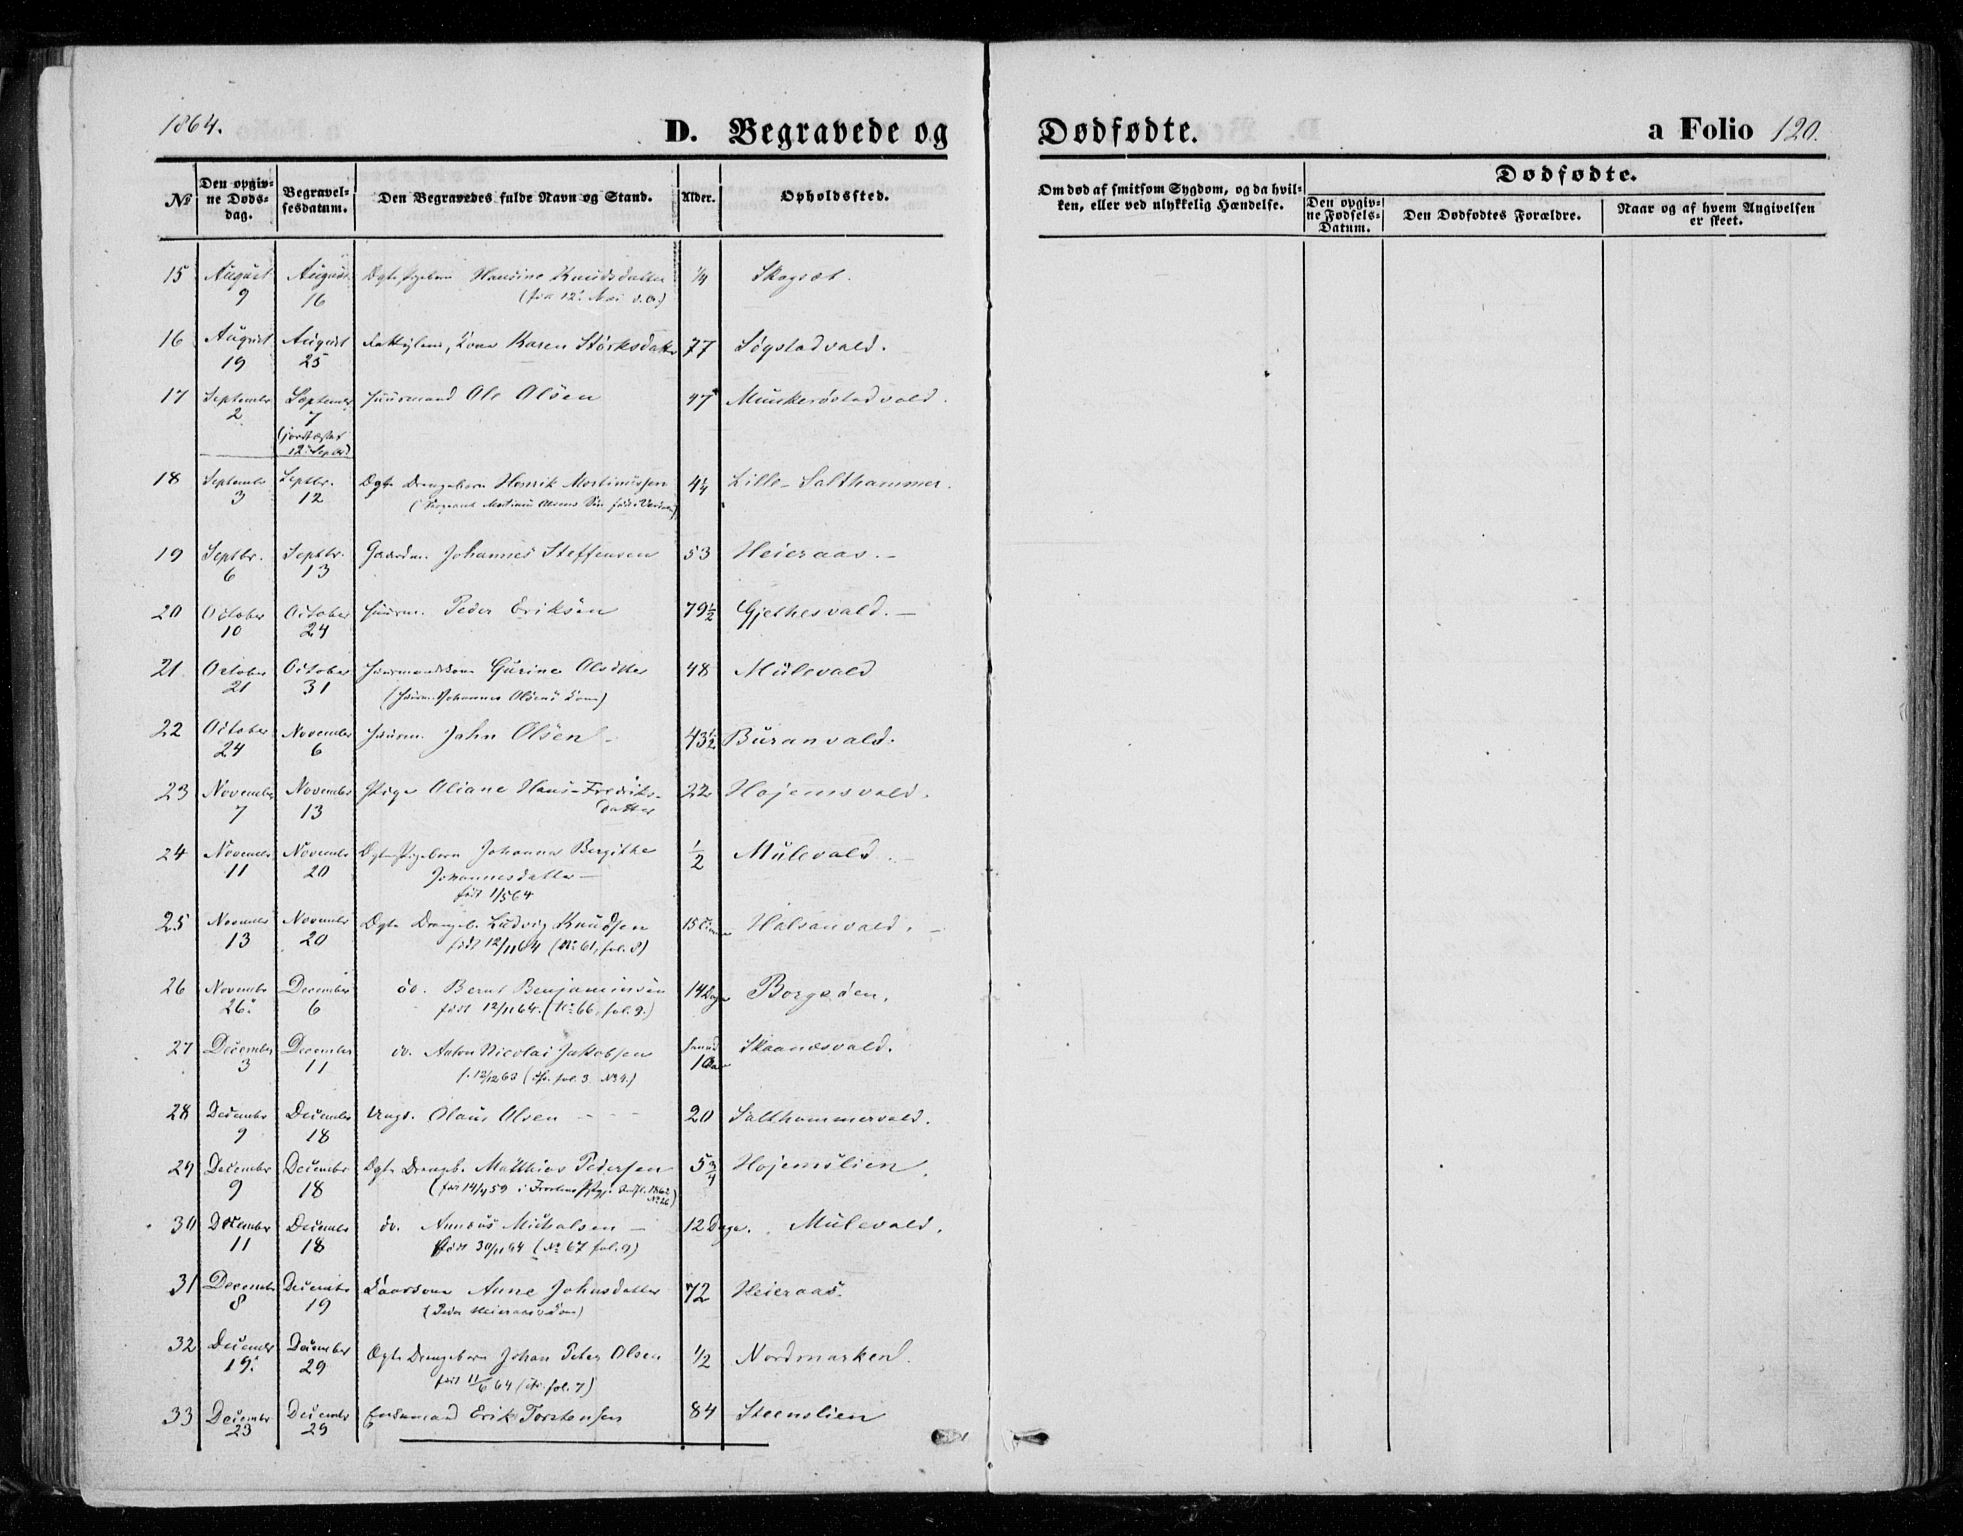 1864.
D. Begravede og
Dødfødte.
a Folio 120.
№
Den opgiv-
ne Døds-
dag.
Begravel-
sesdatum.
Den Begravedes fulde Navn og Stand.
Alder.
Opholdssted.
Om død af smitsom Sygdom, og da hvil-
ken, eller ved ulykkelig Hændelse.
Dødfødte.
Den opgiv-
ne Fødsels-
Datum.
Den Dødfødtes Forældre.
Naar og af hvem Angivelsen
er skeet.
15 August 9 August 16 Ægte Pigebarn Hansine Knudsdatter 1/4 Skogset.
16 August 19 August 25 Kone Karen Størksdatter 77 Søgstadvald.
17 September 2 September 7 Huusmand Ole Olsen 47 Munkerøstadvald.
(jordfæstet
12 Septbr)
18 September 3 Septbr. 12 Ægte Drengebarn Henrik Martinussen 4 1/4 Lille-Salthammer.
(Martinus Olsens Søn født i
19 Septbr. 6 Septbr. 13 Gaardm. Johannes Steffensen 53 Heieraas.-
20 October 10 October 24 Huusm. Peder Eriksen 79 1/2 Gjethesvald.-
21 October 21 October 31 Huusmandskone Gurine Olsdtter 48 Mülevald
(Huusm. Johannes Olsens Kone)
22 October 24 November 6 Huusm. John Olsen- 43 1/2 Buranvald.
23 November 7 November 13 Pige Oliane Hans-Fredriks- 22 Hojemsvald.
datter
24 November 11 November 20 Ægte Pigebarn Johanna Bergitte 1/2 Mülevald.-
Johannesdatter-
født 1/5 64
25 November 13 November 20 Ægte Drengeb. Ludvig Knudsen 15 Halsanvald.-
født 12/11 64 (No 61, fol. 8)
26 November 26. December 6 do. Bernt Benjaminsen 14 Dage Borgsøen.
født 12/11 64. (No 66, fol. 9.)
27 December 3 December 11 do. Anton Nicolai Jakobsen 1 Aar Skaanæsvald.
f. 12/12 63 (cfr. fol. 3 No 4.)
28 December 9 December 18 Ungk. Olaus Olsen - - - 20 Salthammervald.
29 December 9 December 18 Ægte Drengeb. Matthias Pedersen 5 3/4 Hojemslien.
(født 14/4 59 i Frostens Pgj. 1862
No 26)
30 December 11 December 18 do. Annæus Michalsen - 12 Dage. Mülevald.
født 30/11 64 (No 67 fol. 9)
31 December 8 December 19 Anne Johnsdatter 72 Heieraas.
(Peder Heieraas's Kone)
32 December 19. December 29 Ægte Drengebarn Johan Peter Olsen 1/2 Nordmarken.
født 11/6 64 (cfr. fol. 7)
33 December 23 December 29 Erik Torstensen 84 Steenslien